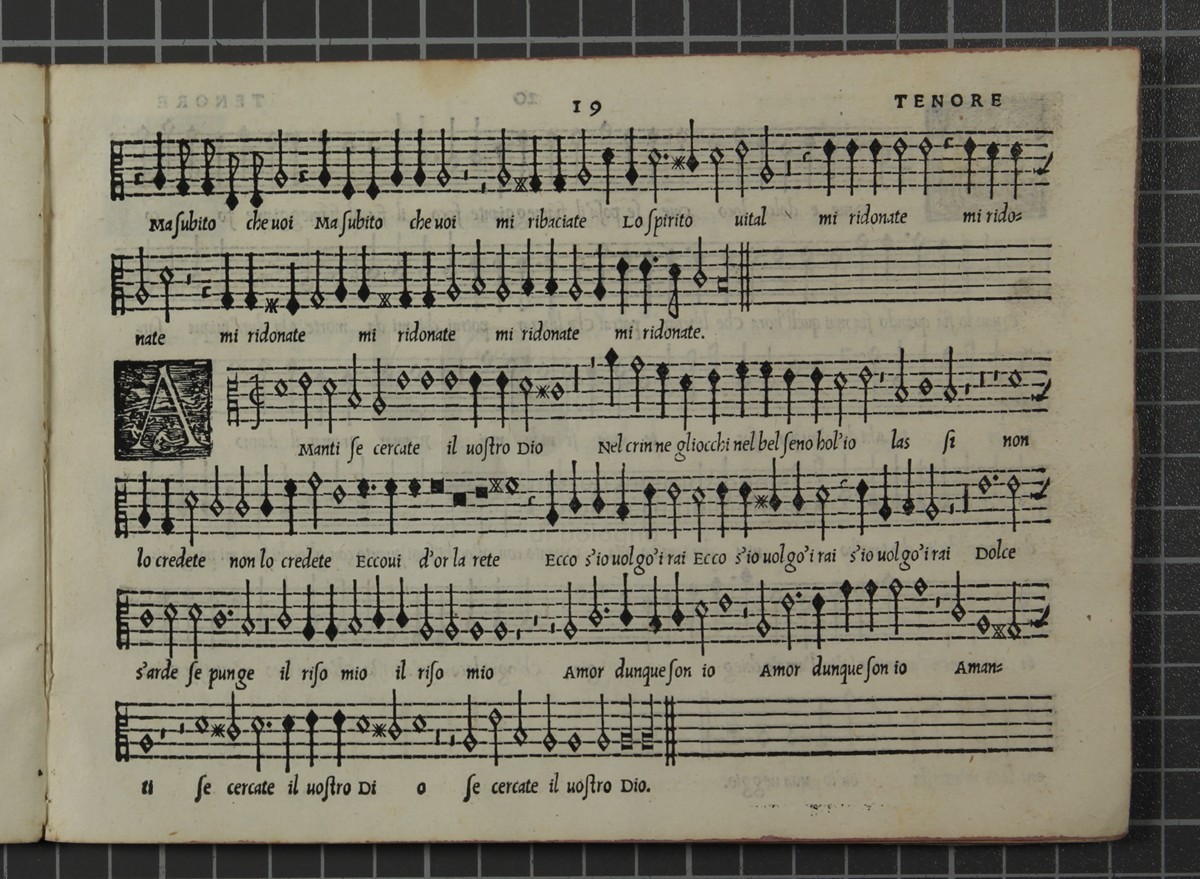 19 TENORE
Ma ſubito che uoi Ma ſubito che uoi mi ribaciate Lo ſpirito uital mi ridonate mi rido=
nate mi ridonate mi ridonate mi ridonate mi ridonate.
A Manti ſe cercate il uoſtro Dio Nel crin ne gliocchi nel bel ſeno hol'io las ſi non
lo credete non lo credete Eccoui d'or la rete Ecco s'io uolgo'i rai Ecco s'io uolgo'i rai s'io uolgo'i rai Dolce
s'arde ſe punge il riſo mio il riſo mio Amor dunque ſon io Amor dunque ſon io Aman=
ti ſe cercate il uoſtro Di o ſe cercate il uoſtro Dio.